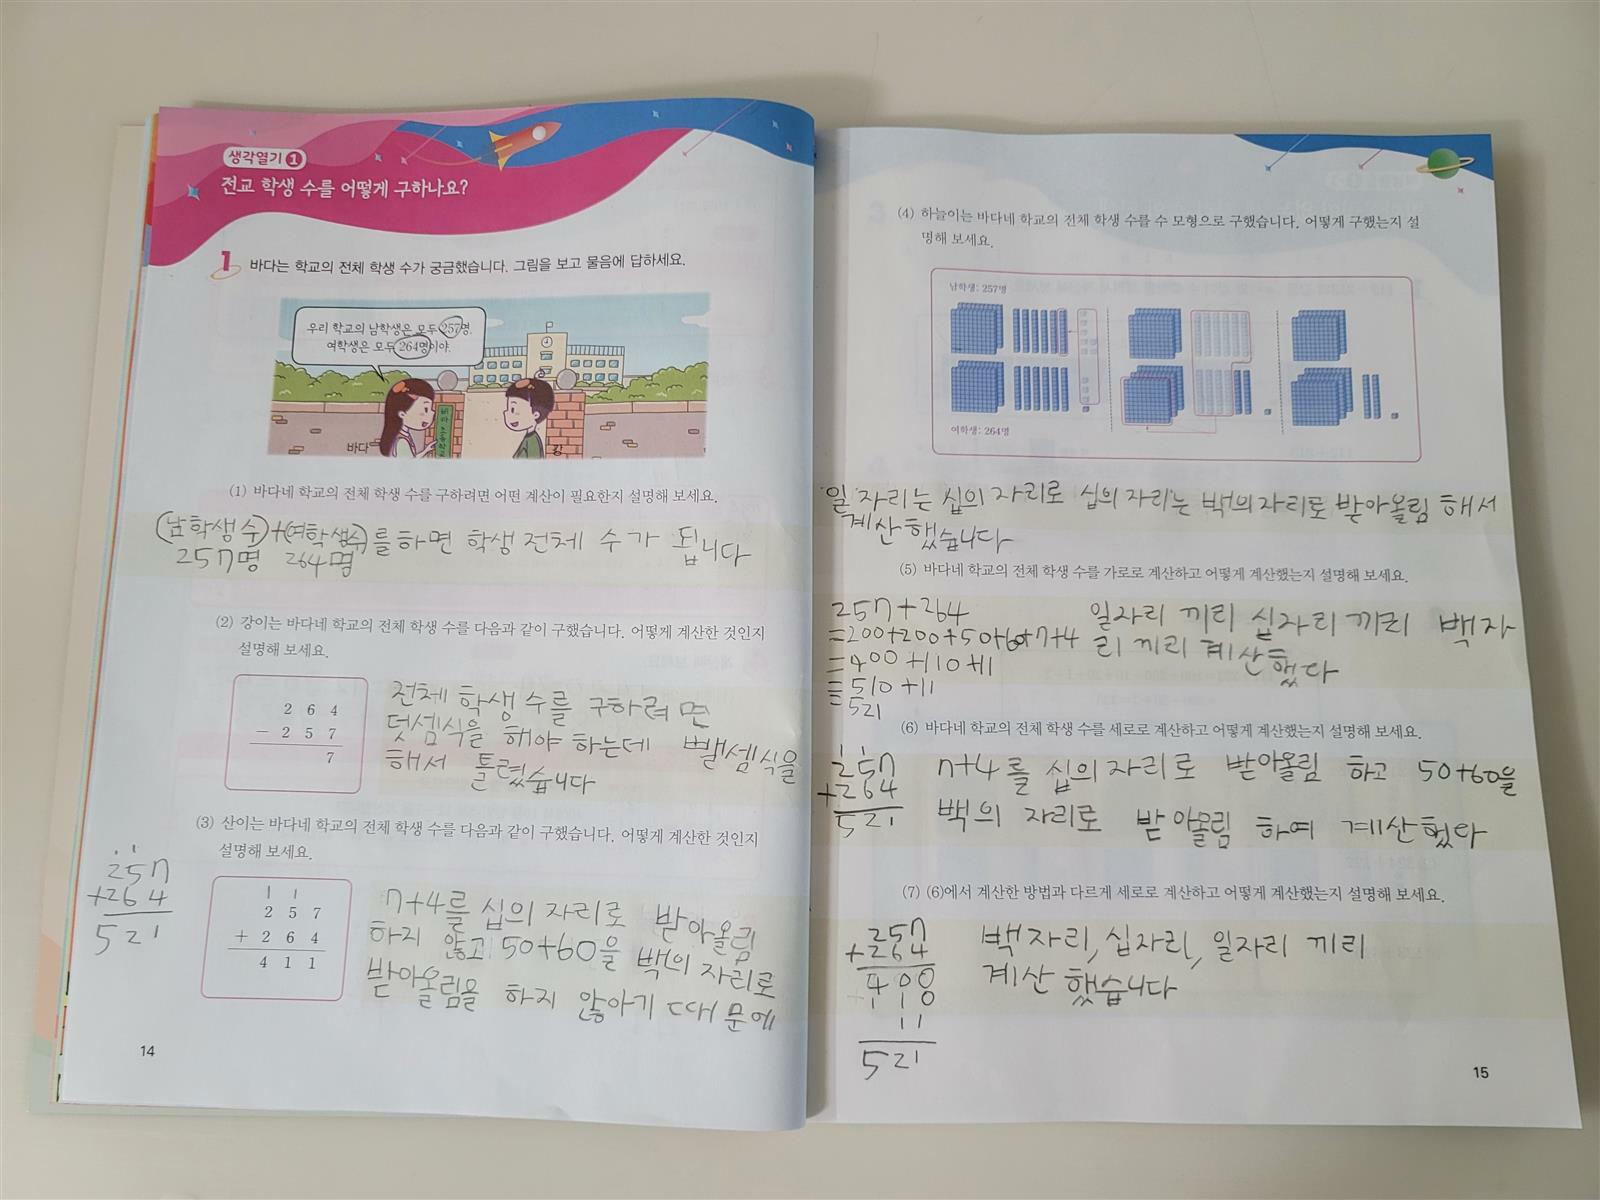 생각열기 1
전교 학생 수를 어떻게 구하나요?
1 바다는 학교의 전체 학생 수가 궁금했습니다. 그림을 보고 물음에 답하세요.
우리 학교의 남학생은 모두 257명.
여학생은 모두 264명이야.
바다 초등학교
바다
강
(1) 바다네 학교의 전체 학생 수를 구하려면 어떤 계산이 필요한지 설명해 보세요.
(남학생 수)+(여학생수)를 하면 학생 전체 수가 됩니다
257명 264명
(2) 강이는 바다네 학교의 전체 학생 수를 다음과 같이 구했습니다. 어떻게 계산한 것인지
설명해 보세요.
2 6 4
- 2 5 7
7
전체 학생 수를 구하려면
덧셈식을 해야 하는데 뺄셈식을
해서 틀렸습니다
(3) 산이는 바다네 학교의 전체 학생 수를 다음과 같이 구했습니다. 어떻게 계산한 것인지
설명해 보세요.
257
+264
521
1 1
2 5 7
+ 2 6 4
4 1 1
7+4를 십의 자리로 받아올림
하지 않고 50+60을 백의 자리로
받아올림을 하지 않아기 때문에
14
(4) 하늘이는 바다네 학교의 전체 학생 수를 수 모형으로 구했습니다. 어떻게 구했는지 설
명해 보세요.
남학생: 257명
여학생: 264명
일 자리는 십의 자리로 십의 자리는 백의자리로 받아올림 해서
계산 했습니다
(5) 바다네 학교의 전체 학생 수를 가로로 계산하고 어떻게 계산했는지 설명해 보세요.
257+264
=200+200+50+60+7+4
=400+110+11
=510+11
=521
일자리 끼리 십자리 끼리 백자
리 끼리 계산했다
(6) 바다네 학교의 전체 학생 수를 세로로 계산하고 어떻게 계산했는지 설명해 보세요.
1 1
257
+264
521
7+4를 십의 자리로 받아올림 하고 50+60을
백의 자리로 받아올림 하여 계산했다
(7) (6)에서 계산한 방법과 다르게 세로로 계산하고 어떻게 계산했는지 설명해 보세요.
257
+264
400
110
11
521
백자리, 십자리, 일자리 끼리
계산 했습니다
15